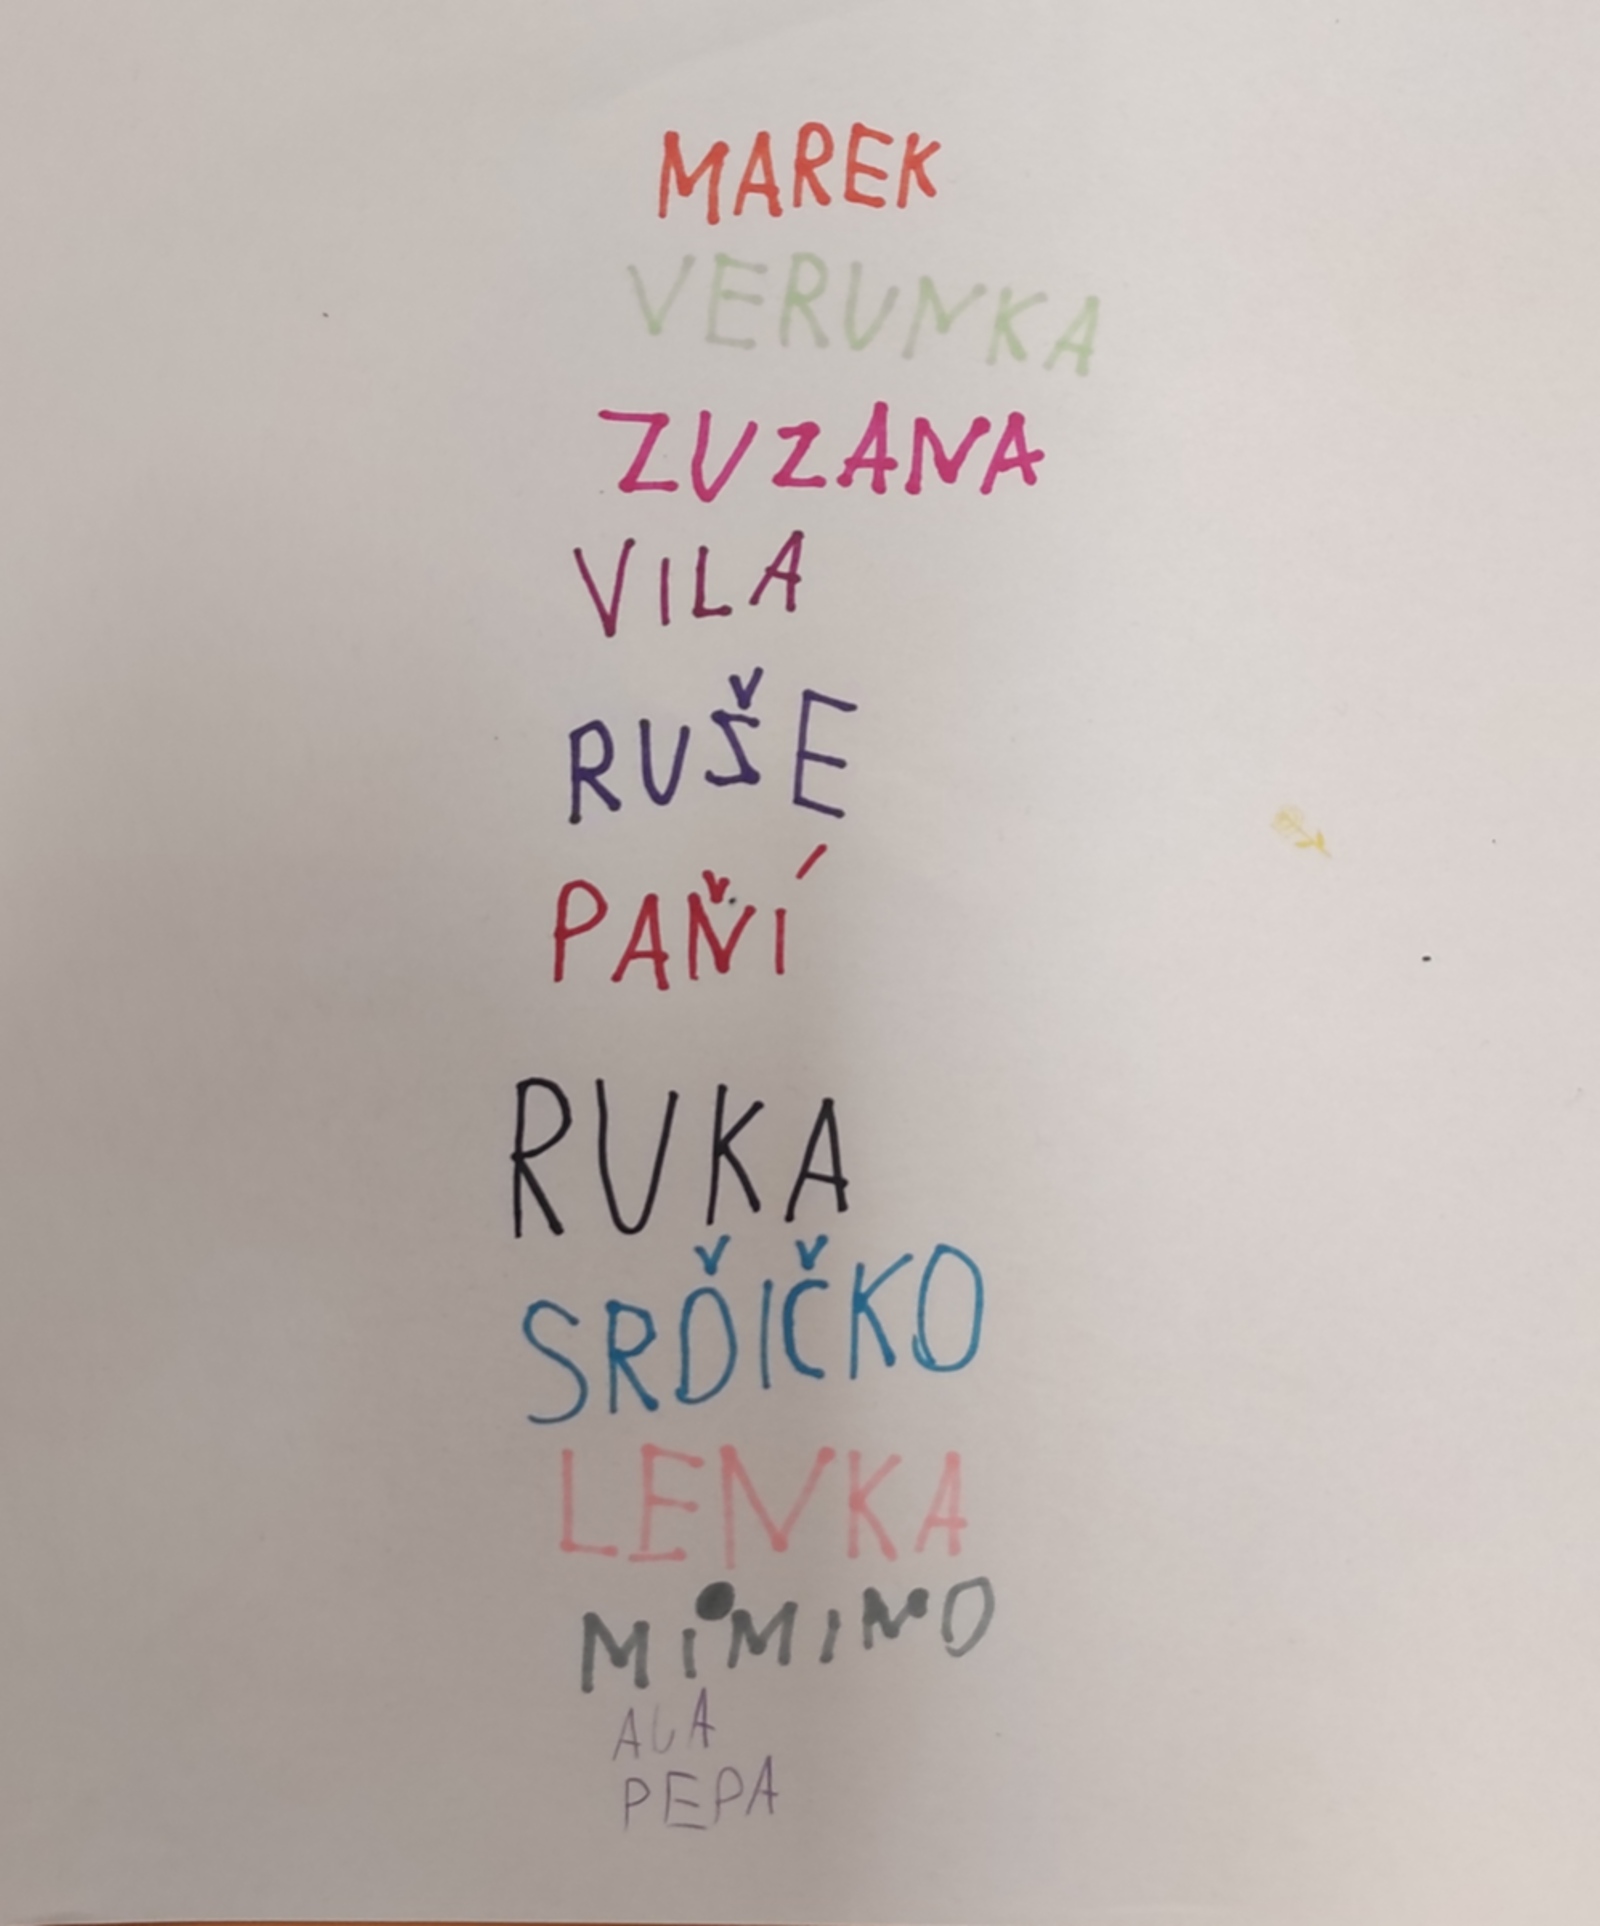 MAREK
VERUNKA
ZUZANA
VILA
RUŠE
PAŇÍ
RUKA
SRĎIČKO
LENKA
MiMINO
AUA
PEPA